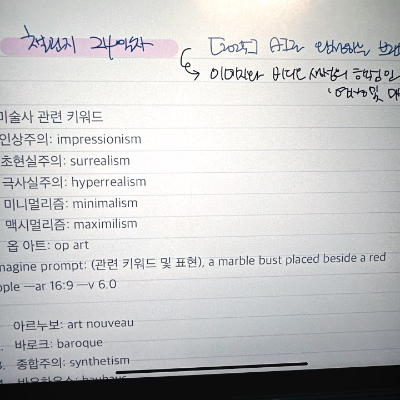 24일차
[2025] AI와
이미지와 비디오
미술사 관련 키워드
인상주의: impressionism
초현실주의: surrealism
극사실주의: hyperrealism
미니멀리즘: minimalism
맥시멀리즘: maximilism
옵 아트: op art
magine prompt: (관련 키워드 및 표현), a marble bust placed beside a red
pple —ar 16:9 —v 6.0
아르누보: art nouveau
바로크: baroque
종합주의: synthetism
바우하우스: bauhaus